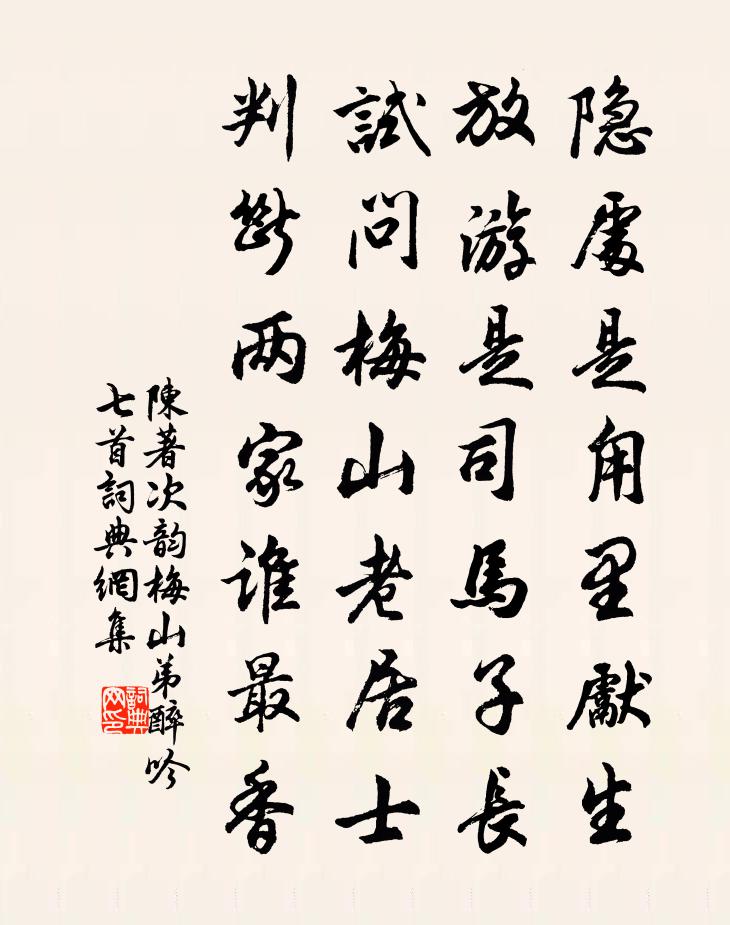 隐處是甪里獻生
放游是司馬子長
試問梅山老居士
判斷两家谁最香
陳著次韵梅山弟醉吟
七首詞典網集
詞典网印